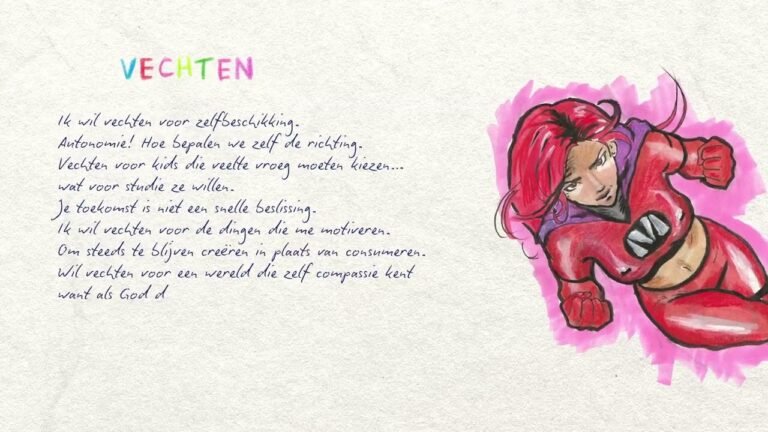 VECHTEN
Ik wil vechten voor zelfbeschikking.
Autonomie! Hoe bepalen we zelf de richting.
Vechten voor kids die veelte vroeg moeten kiezen...
wat voor studie ze willen.
Je toekomst is niet een snelle beslissing.
Ik wil vechten voor de dingen die me motiveren.
Om steeds te blijven creëren in plaats van consumeren.
Wil vechten voor een wereld die zelf compassie kent
want als God d
M